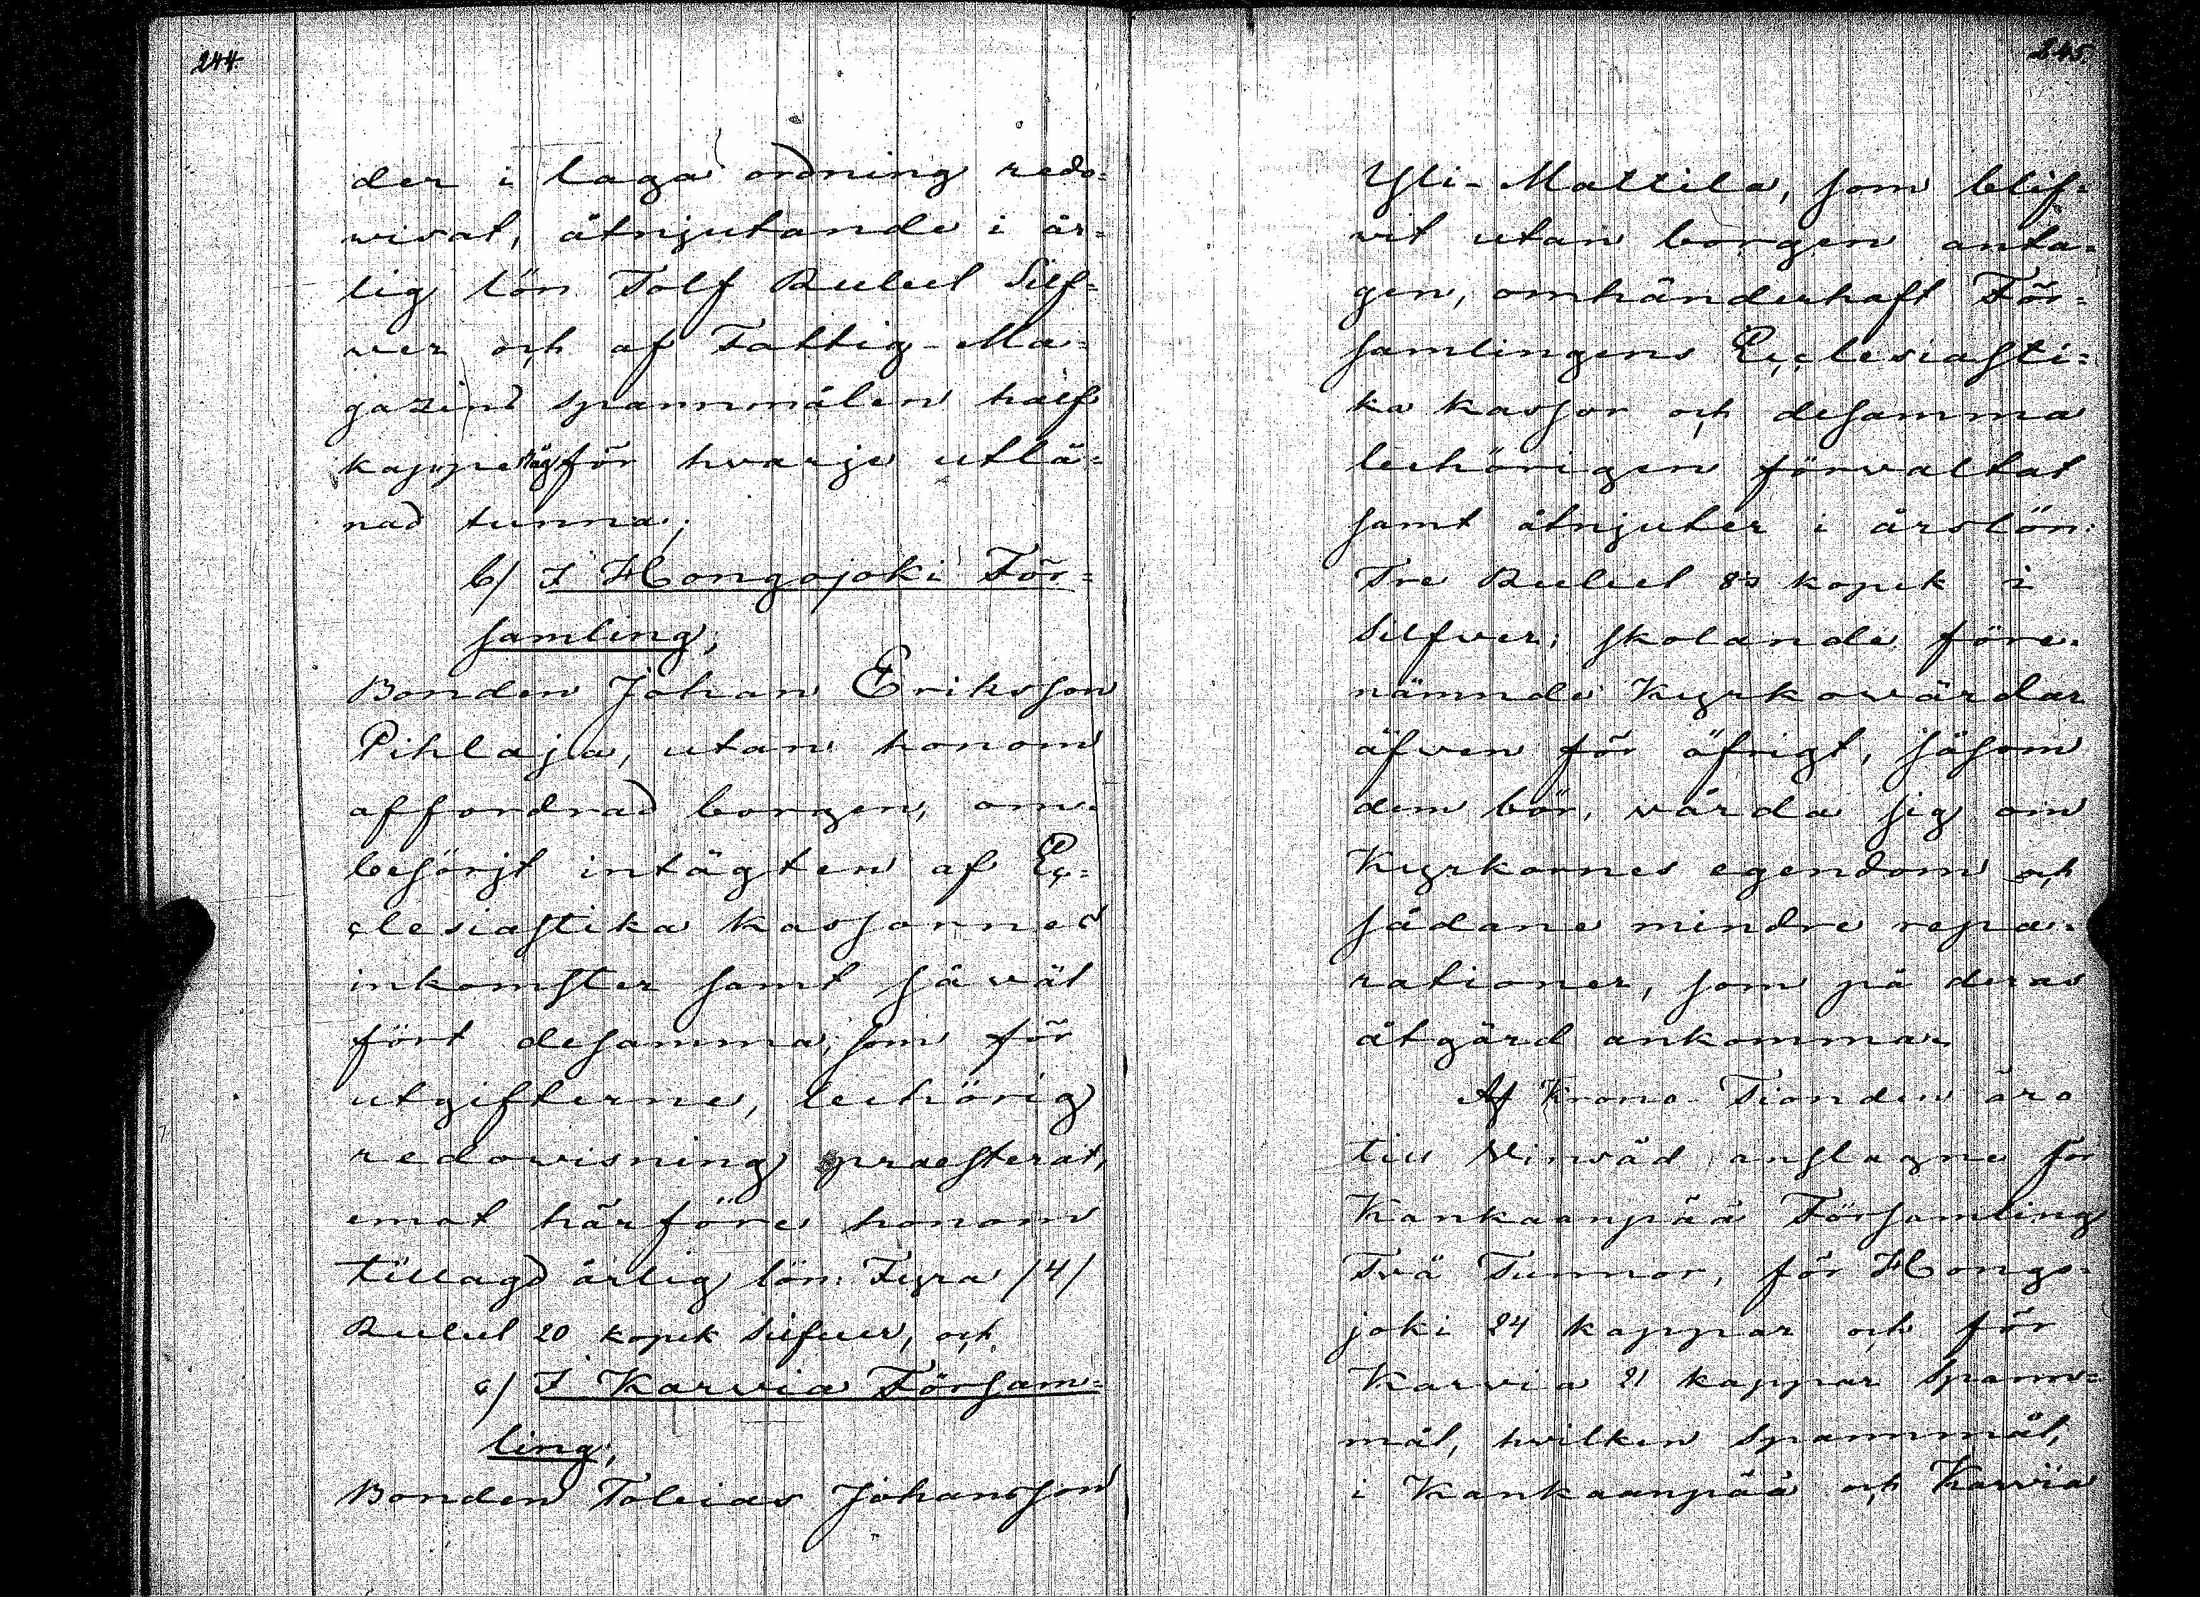 244
der i laga ordning redo=
visat, åtnjutande i år=
lig lön Tolf Rubel Silf=
ver och af Fattig-Ma=
gazins spannmålen half
kappe råg för hvarje utlå=
nad tunna;
b/ I Hongojoki För=
samling;
Bonden Johan Eriksson
Pihlaja, utan honom
affordrad borgen, om=
besörjt intägten af Ec=
clesiastika kassornes
inkomster samt så väl
fört desamma, som för
utgifterne, behörig
redovisning praesterat,
emot härföre honom
tillagd årlig lön: Fyra /4/
Rubel 20 kopek Silfver, och
c/ I Karvia Försam=
ling;
Bonden Tobias Johansson
245.
Yli-Mattila, som blif=
vit utan borgen anta=
gen, omhänderhaft För=
samlingens Ecclesiasti=
ka kassor och desamma
behörigen förvaltat
samt åtnjuter i årslön:
Tre Rubel kopek i
Silfver; skolande före=
nämnde Kyrkovärdar
äfven för öfrigt, såsom
dem bör, vårda sig om
Kyrkornes egendom och
sådane mindre repa=
rationer, som på deras
åtgärd ankomma.
Af Krono-Tionden äro
till Vinsäd anslagne för
Kankaanpää Församling
Två Tunnor, för Hongo=
joki 24 kappar och för
Karvia 21 kappar Spann=
mål, hvilken Spannmål,
i Kankaanpää och Karvia